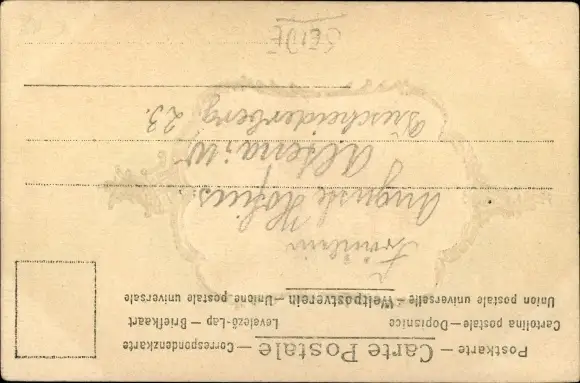 Postkarte — Carte Postale — Correspondenzkarte
Cartolina postale — Dopisnice Levelező-Lap — Briefkaart
Union postale universelle — Weltpostverein — Unione postale universale
Fräulein
Auguste Hofius
Altena i/W
23.
SEIDE